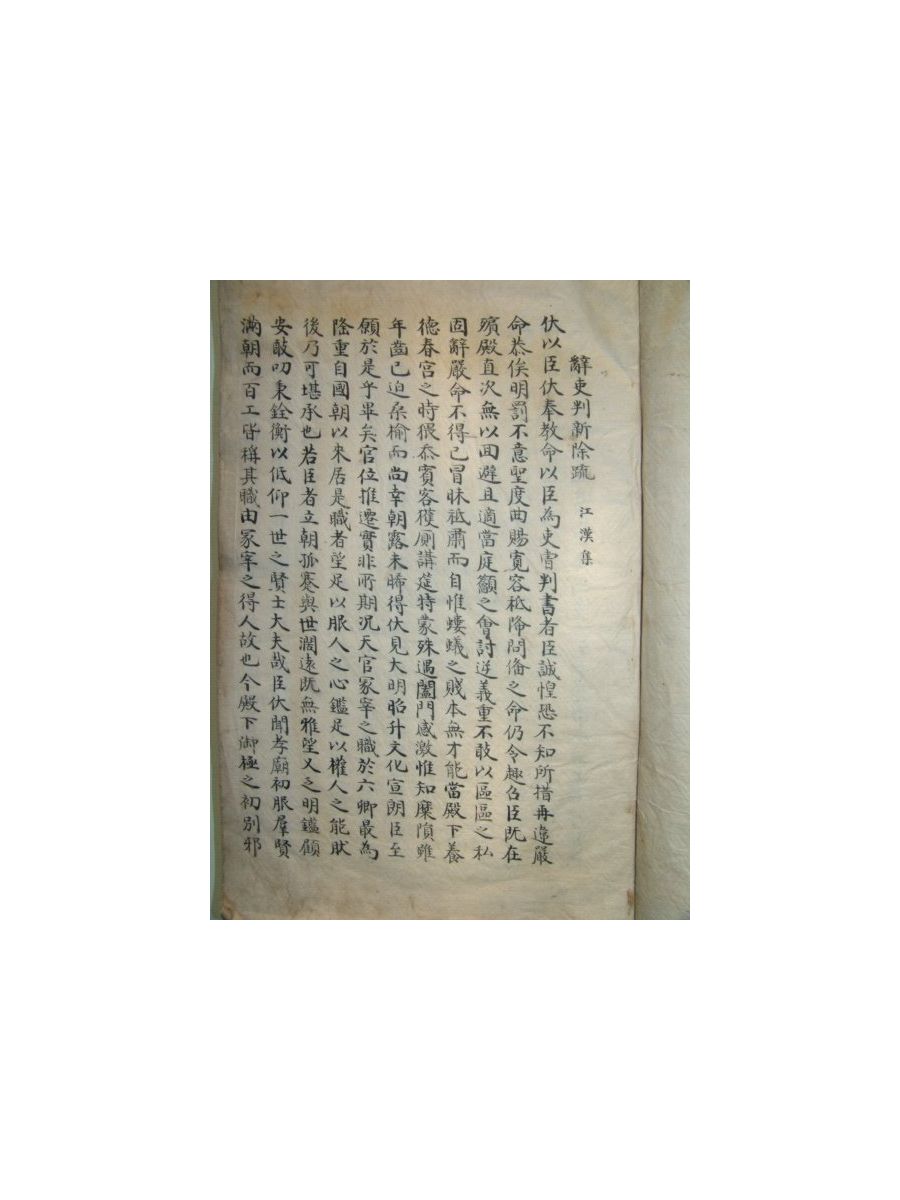 辭吏判新除疏 江漢集
伏以臣伏奉教命以臣為吏曹判書者臣誠惶恐不知所措再違嚴
命恭俟明罰不意聖度曲賜寬容祗降問俻之命仍令趣召臣既在
殯殿直次無以回避且適當庭籲之會討逆義重不敢以區區之私
固辭嚴命不得已冒昧祗肅而自惟螻蟻之賤本無才能當殿下養
德春宮之時猥忝賓客獲厠講筵特蒙殊遇闔門感激惟知糜隕雖
年齒已迫桑榆而尚幸朝露未晞得伏見大明昭升文化宣朗臣至
願於是乎畢矣官位推遷實非所期况天官冢宰之職於六卿最為
隆重自國朝以來居是職者望足以服人之心鑑足以權人之能肰
後乃可堪承也若臣者立朝孤蹇與世濶遠既無雅望又乏明鑑顧
安敢叨秉銓衡以低仰一世之賢士大夫哉臣伏聞孝廟初服羣賢
滿朝而百工皆稱其職由冢宰之得人故也今殿下御極之初別邪